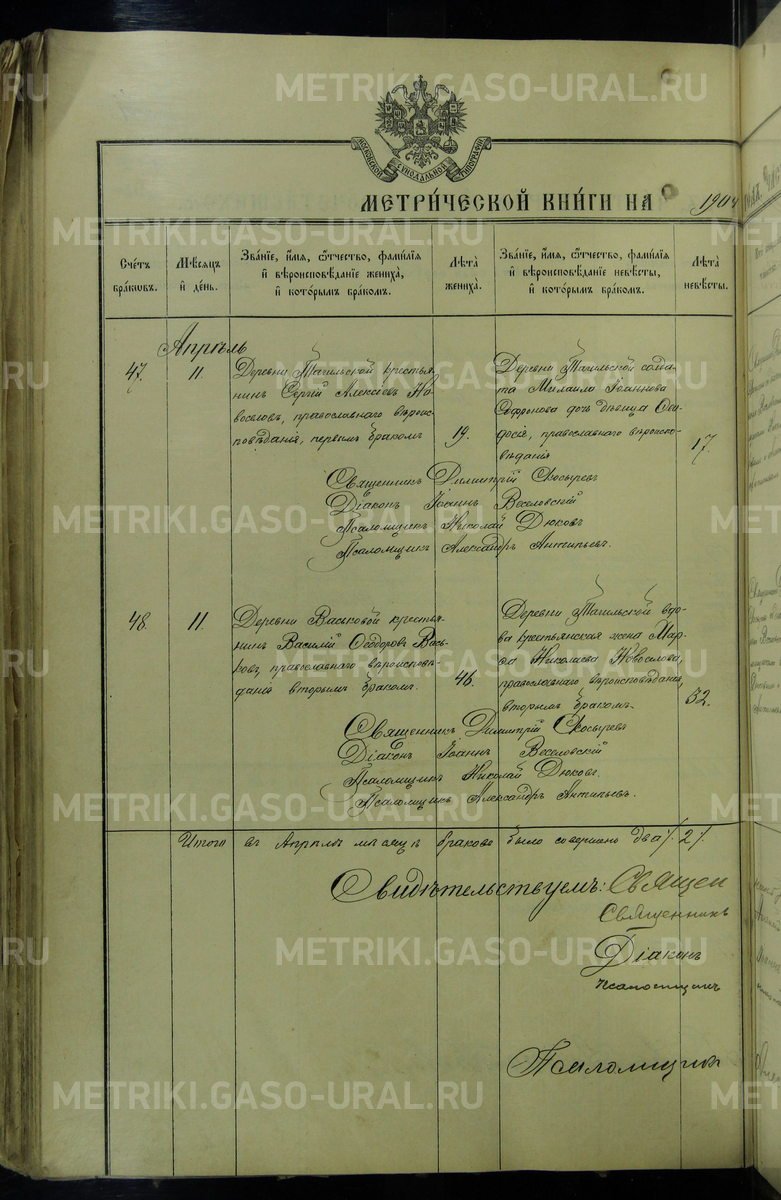 МОСКОВСКОЙ СУНОДАЛЬНОЙ ТИПОГРАФІИ
МЕТРИ́ЧЕСКОЙ КНИ́ГИ НА 1904
Счéтъ бра́ковъ.
Мѣсяцъ и҆ де́нь.
Зва́нїе, и҆́мя, ѻ҆́тчество, фами́лїя и҆ вѣроисповѣ́данїе жениха̀, и҆ кото́рымъ бра́комъ.
Лѣ́та жениха̀.
Зва́нїе, и҆́мя, ѻ҆́тчество, фами́лїя и҆ вѣроисповѣ́данїе невѣ́сты, и҆ кото́рымъ бра́комъ.
Лѣ́та невѣ́сты.
Апрѣль
47.
11.
Деревни Тагильской крестья-
нинъ Сергій Алексіевъ Но-
воселовъ, православнаго вѣроис-
повѣданія, первымъ бракомъ
19.
Деревни Тагильской солда-
та Михаила Іоаннова
Софронова дочь дѣвица Ѳео-
досія, православнаго вѣроиспо-
вѣданія
17.
Священникъ Димитрій Скосыревъ
Діаконъ Іоаннъ Веселовскій
Псаломщикъ Николай Дюковъ
Псаломщикъ Александръ Антипьевъ.
48.
11.
Деревни Васьковой крестья-
нинъ Василій Ѳеодоровъ Вась-
ковъ, православнаго вѣроиспов-
данія вторымъ бракомъ.
46.
Деревни Тагильской вдо-
ва крестьянская жена Мар-
ѳа Николаева Новоселова,
православнаго вѣроисповѣданія,
вторымъ бракомъ.
32.
Священникъ Димитрій Скосыревъ
Діаконъ Іоаннъ Веселовскій
Псаломщикъ Николай Дюковъ.
Псаломщикъ Александръ Антипьевъ.
Итого въ Апрѣлѣ мѣсяцѣ браковъ было совершено два /2/.
Свидѣтельствуемъ: Священ
Священникъ
Діаконъ
псаломщикъ
Псаломщик
METRIKI.GASO-URAL.RU